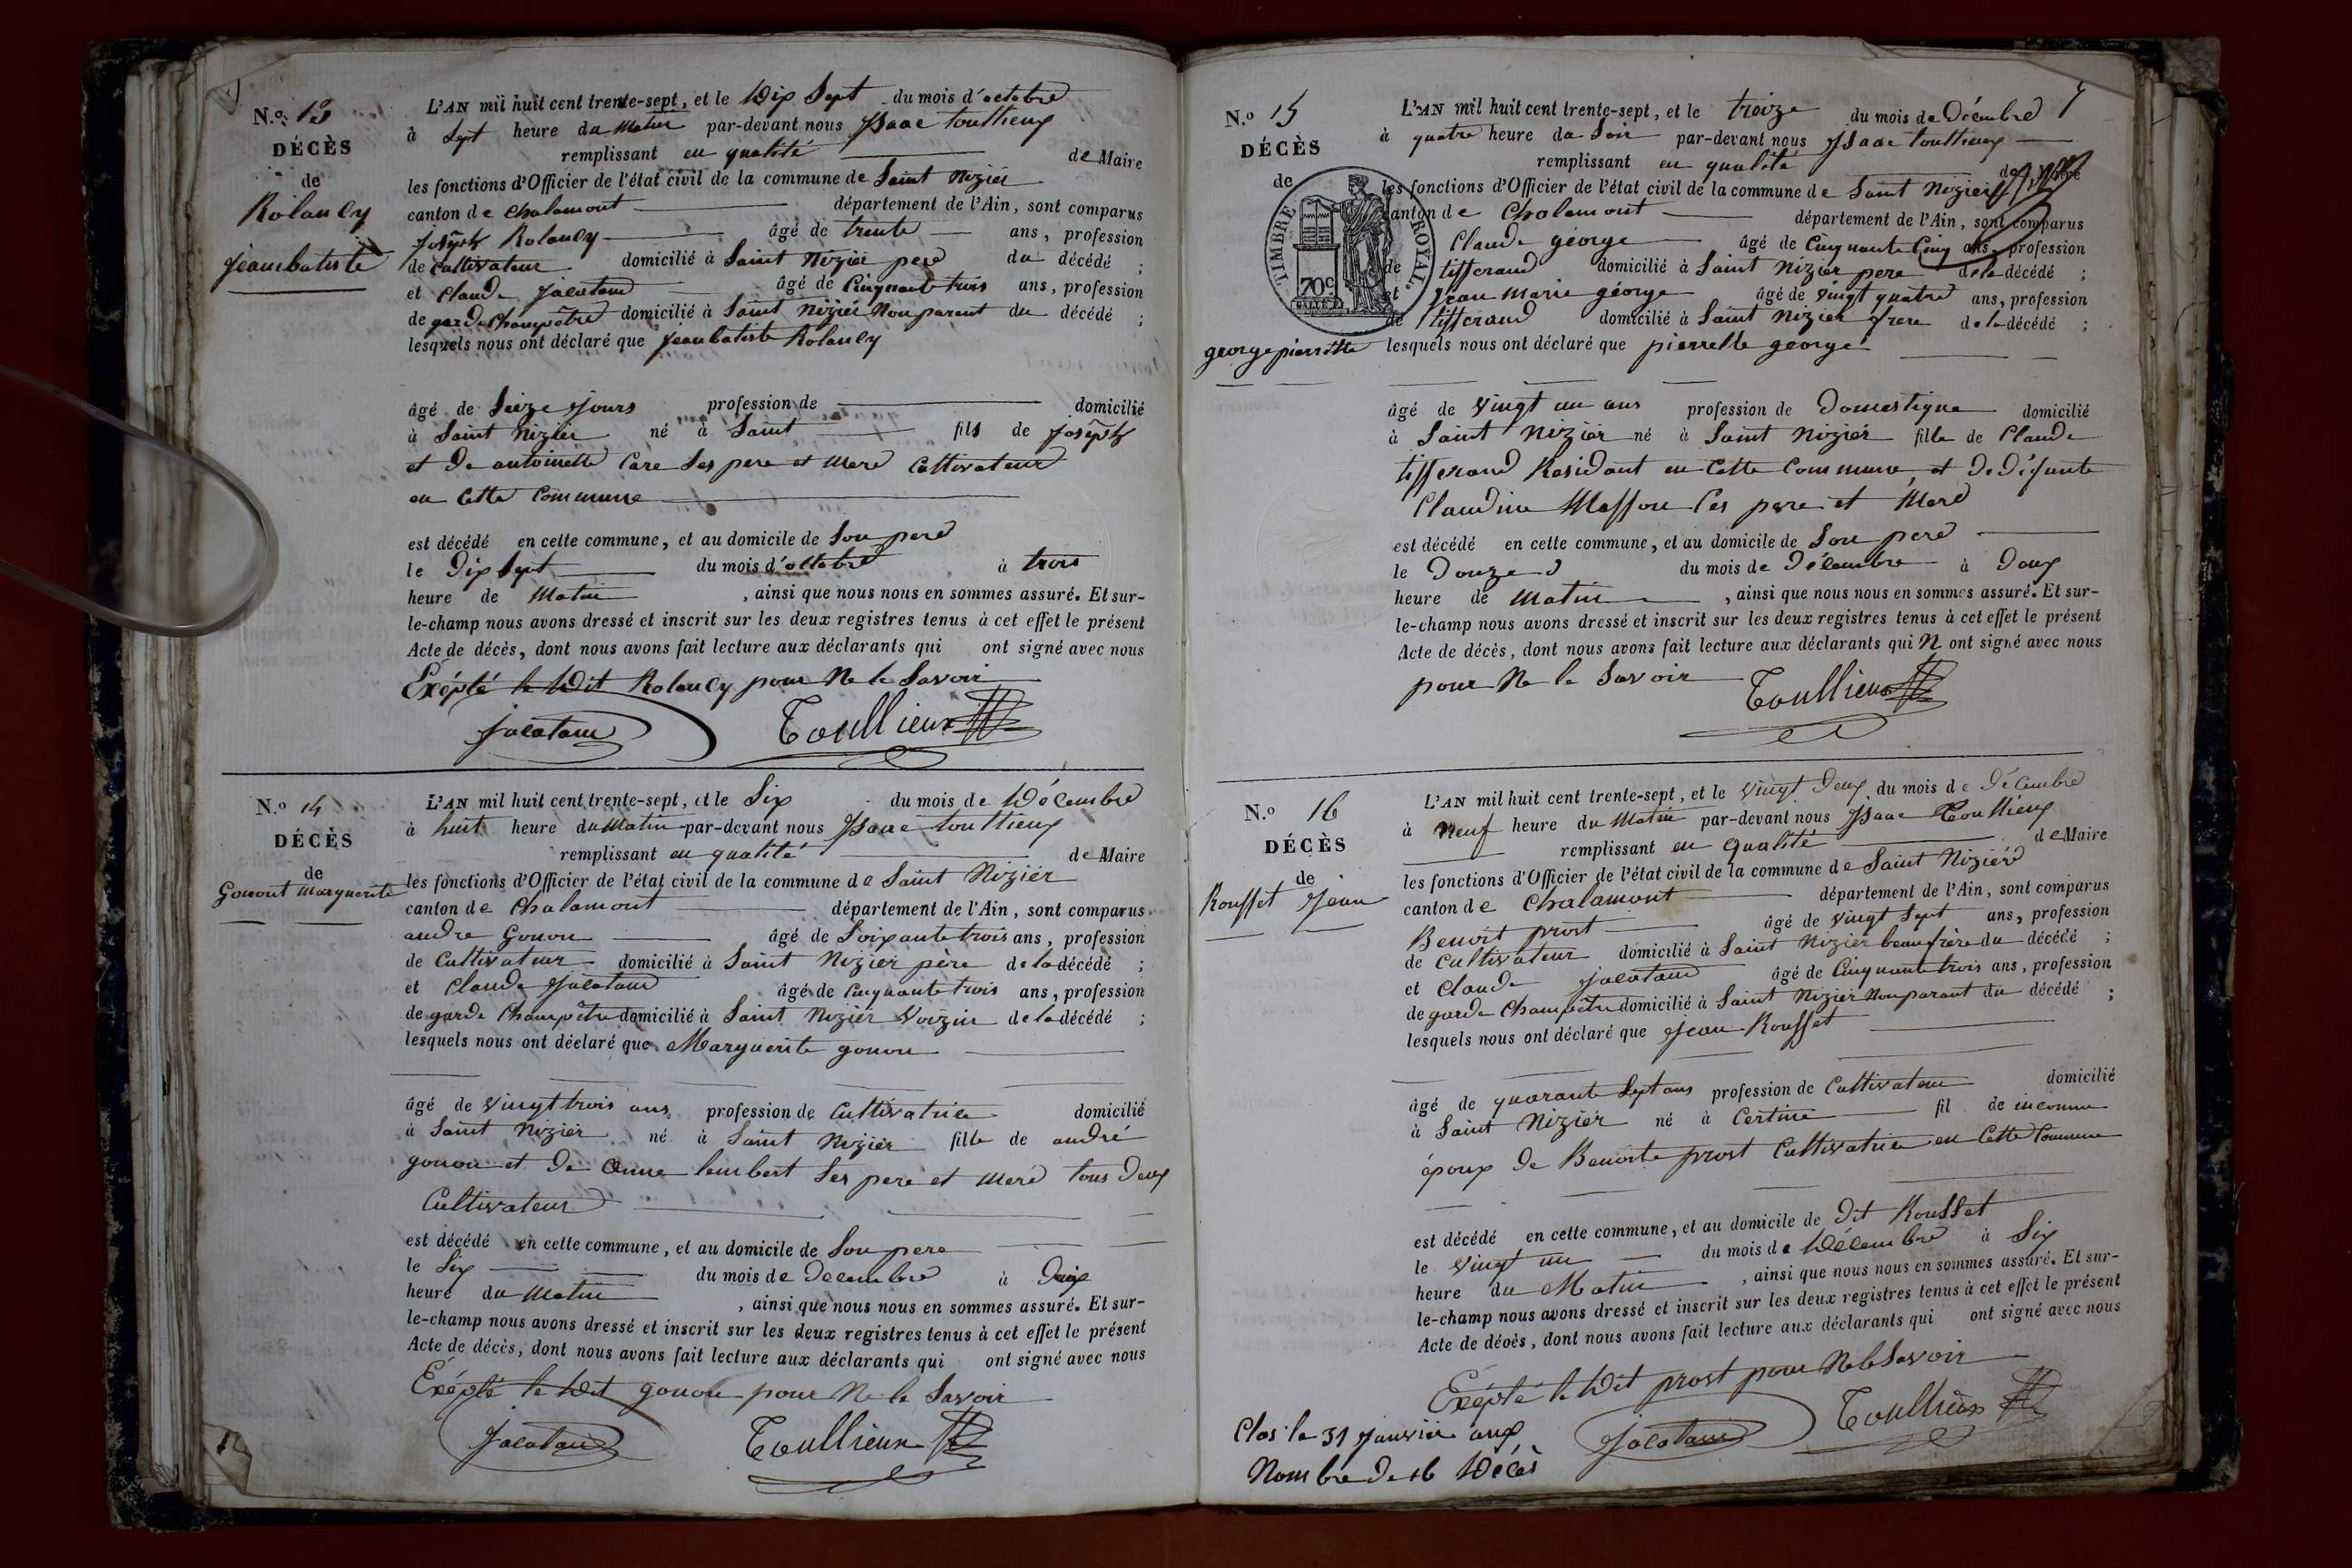 N.o 13
DÉCÈS
de
Rolandy
Jeanbatiste
L'AN mil huit cent trente-sept, et le Dix Sept du mois d'octobre
à Sept heure du Matin par-devant nous Isaac toullieux
remplissant en qualité de Maire
les fonctions d'Officier de l'état civil de la commune de Saint Nizier
canton de Chalamont département de l'Ain, sont comparus
Joseph Rolandy âgé de trente ans, profession
de Cultivateur domicilié à Saint Nizier pere du décédé ;
et Claude Jacatand âgé de Cinquante trois ans, profession
de garde Champêtre domicilié à Saint Nizier Non parent du décédé ;
lesquels nous ont déclaré que Jeanbatiste Rolandy
âgé de Seize Jours profession de domicilié
à Saint Nizier né à Saint fils de Joseph
et de antoinette Care Ses pere et Mere Cultivateur
en Cette Commune
est décédé en cette commune, et au domicile de Son pere
le Dix Sept du mois d'octobre à trois
heure de Matin , ainsi que nous nous en sommes assuré. Et sur-
le-champ nous avons dressé et inscrit sur les deux registres tenus à cet effet le présent
Acte de décès, dont nous avons fait lecture aux déclarants qui ont signé avec nous
Exépté le Dit Rolandy pour Ne le Savoir
Jacatand Toullieux
N.o 14
DÉCÈS
de
Gonont Marguerite
L'AN mil huit cent trente-sept, et le Six du mois de Décembre
à huit heure du Matin par-devant nous Isaac toullieux
remplissant en qualité de Maire
les fonctions d'Officier de l'état civil de la commune de Saint Nizier
canton de Chalamont département de l'Ain, sont comparus
andre Gonon âgé de Soixante trois ans, profession
de Cultivateur domicilié à Saint Nizier père de la décédé ;
et Claude Jacatand âgé de Cinquante trois ans, profession
de garde Champêtre domicilié à Saint Nizier Voizin de la décédé ;
lesquels nous ont déclaré que Marguerite gonon
âgé de Vingt trois ans profession de Cultivatrice domicilié
à Saint Nizier né à Saint Nizier fille de andré
gonon et de Anne lembert Ses pere et Meré tous Deux
Cultivateur
est décédé en cette commune, et au domicile de Son pere
le Six du mois de Decembre à Deux
heure du Matin , ainsi que nous nous en sommes assuré. Et sur-
le-champ nous avons dressé et inscrit sur les deux registres tenus à cet effet le présent
Acte de décès, dont nous avons fait lecture aux déclarants qui ont signé avec nous
Exépté le Dit gonon pour Ne le Savoir
Jacatand Toullieux
N.o 15
DÉCÈS
de
TIMBRE ROYAL
70c
george pierrette
L'AN mil huit cent trente-sept, et le treize du mois de Décembre
à quatre heure du Soir par-devant nous Isaac toullieux
remplissant en qualité de Maire
les fonctions d'Officier de l'état civil de la commune de Saint Nizier
canton de Chalamont département de l'Ain, sont comparus
Claude george âgé de Cinquante Cinq ans, profession
de tisserand domicilié à Saint Nizier pere de la décédé ;
et Jean Marie george âgé de vingt quatre ans, profession
de tisserand domicilié à Saint Nizier frere de la décédé ;
lesquels nous ont déclaré que pierrette george
âgé de Vingt un ans profession de Domestique domicilié
à Saint Nizier né à Saint Nizier fille de Claude
tisserand Residant en Cette Commune et de défunte
Claudine Masson Ses pere et Mere
est décédé en cette commune, et au domicile de Son pere
le Douze du mois de Décembre à Deux
heure de Matin , ainsi que nous nous en sommes assuré. Et sur-
le-champ nous avons dressé et inscrit sur les deux registres tenus à cet effet le présent
Acte de décès, dont nous avons fait lecture aux déclarants qui N ont signé avec nous
pour Ne le Savoir Toullieux
N.o 16
DÉCÈS
de
Rousset Jean
L'AN mil huit cent trente-sept, et le Vingt Deux du mois de Décembre
à Neuf heure du Matin par-devant nous Isaac Toullieux
remplissant en qualité de Maire
les fonctions d'Officier de l'état civil de la commune de Saint Nizier
canton de Chalamont département de l'Ain, sont comparus
Benoit prost âgé de vingt Sept ans, profession
de Cultivateur domicilié à Saint Nizier beaufrère du décédé ;
et Claude Jacatand âgé de Cinquante trois ans, profession
de garde Champêtre domicilié à Saint Nizier Non parant du décédé ;
lesquels nous ont déclaré que Jean Rousset
âgé de quarante Sept ans profession de Cultivateur domicilié
à Saint Nizier né à Certine fil de inconnu
époux de Benoite prost Cultivatrice en Cette Commune
est décédé en cette commune, et au domicile de Dit Rousset
le Vingt un du mois de Décembre à Six
heure du Matin , ainsi que nous nous en sommes assuré. Et sur-
le-champ nous avons dressé et inscrit sur les deux registres tenus à cet effet le présent
Acte de décès, dont nous avons fait lecture aux déclarants qui ont signé avec nous
Exépté le Dit prost pour Ne le Savoir
Jacatand Toullieux
Clos le 31 Janvier aux
Nombre de 16 Décès